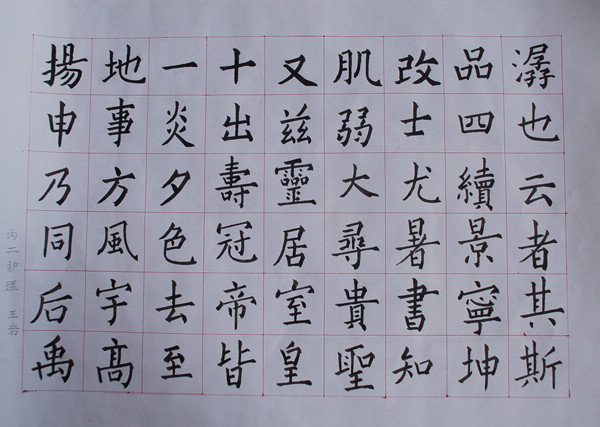 揚地一十又肌改品
申事炎出茲弱士四也
乃方夕壽靈大尤續云
同風色冠居尋暑景者
后宇去帝室貴書寧其
禹高至皆皇聖知坤斯
内二护理 王岩